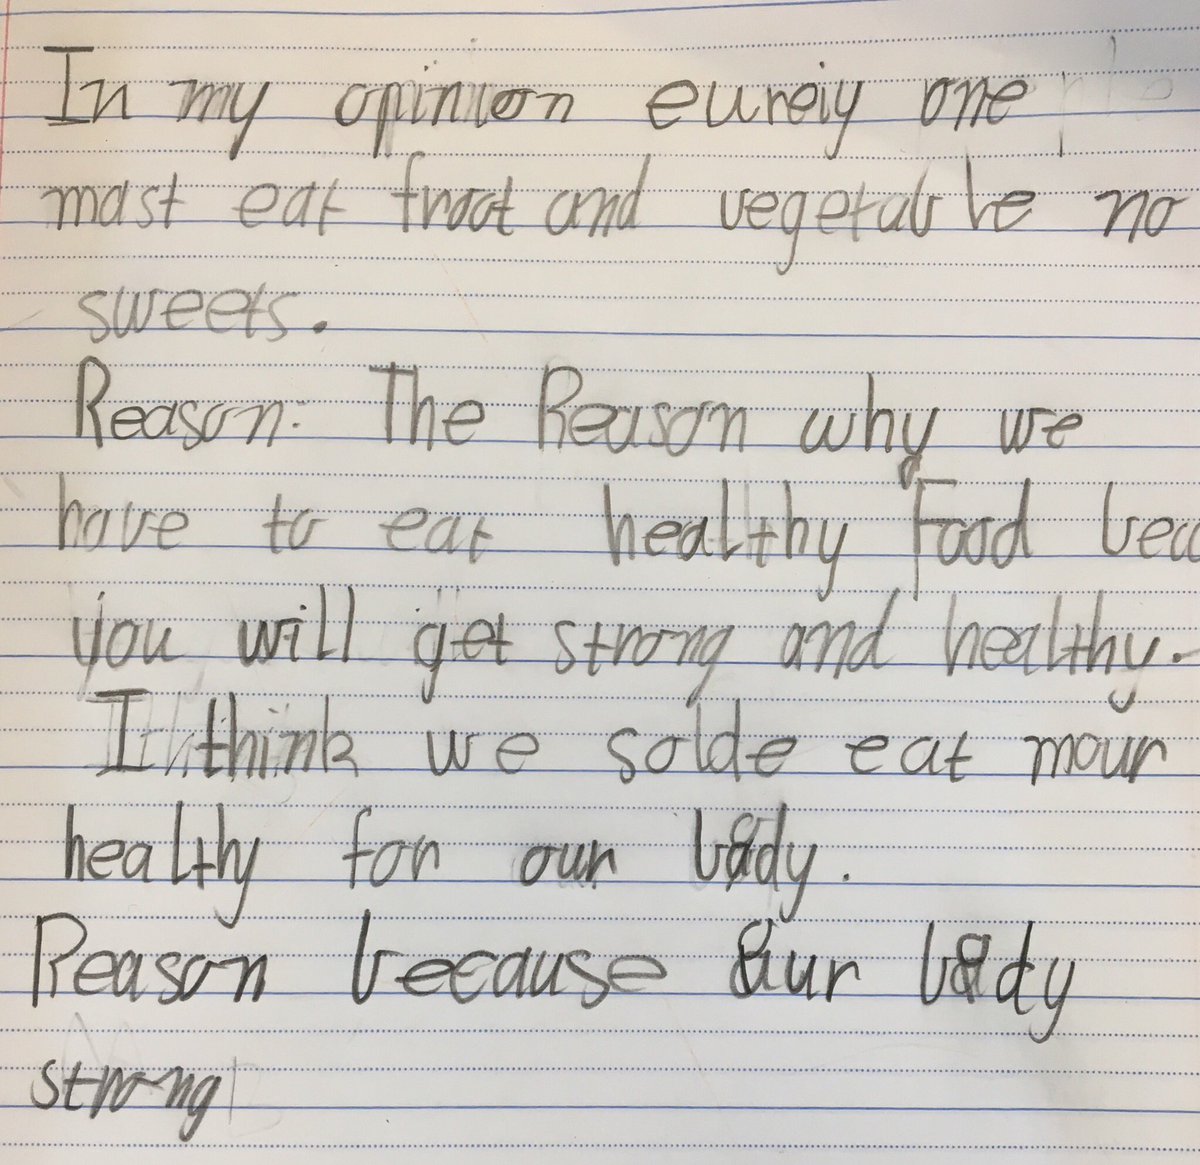 In my opinion eureiy one
mast eat froot and vegetable no
sweets.
Reason: The Reason why we
have to eat healthy Food bec
you will get strong and healthy.
I think we solde eat mour
healthy for our body.
Reason because Our body
strong